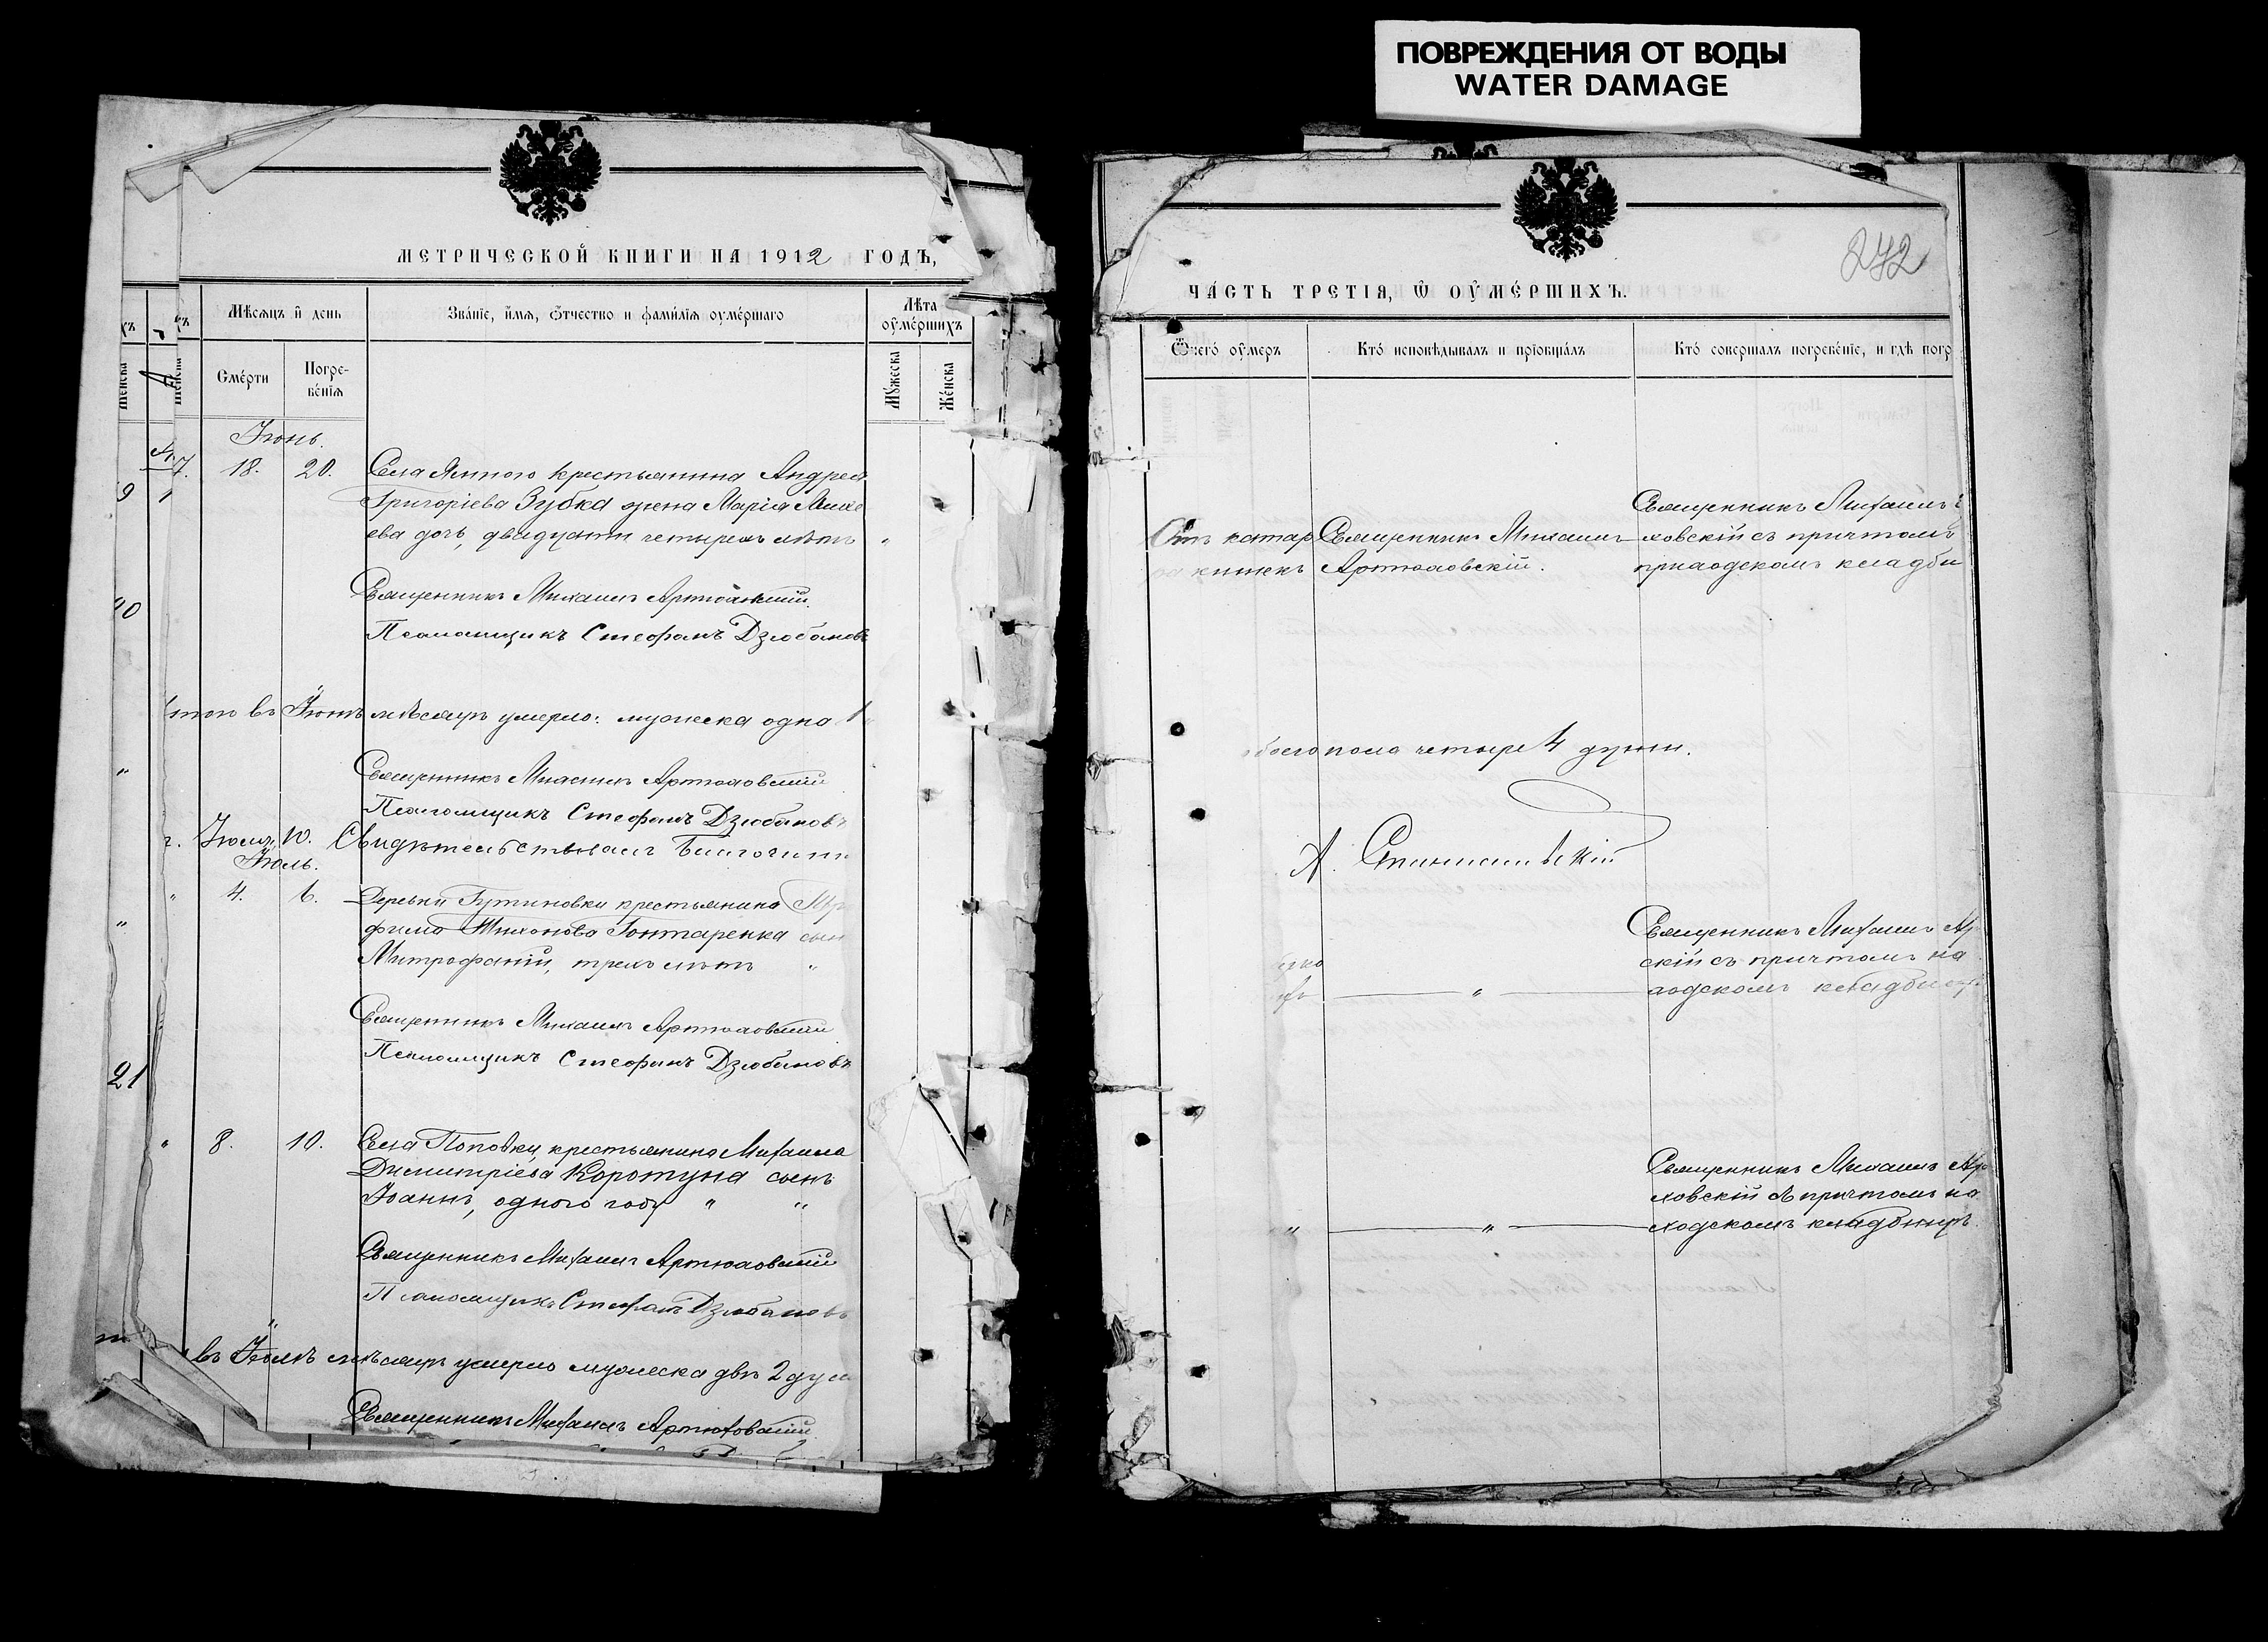 ПОВРЕЖДЕНИЯ ОТ ВОДЫ
WATER DAMAGE
МЕТРИЧЕСКОЙ КНИГИ НА 1912 ГОДЪ,
Мѣсяцъ и день
Званіе, имя, отчество и фамилія оумершаго
Лѣта оумершихъ
Женска
Смерти
Погребенія
Мужеска
Женска
Іюнь.
7. 18. 20. Села Ямного крестьянина Андрея
Григоріева Зубка жена Марія Михе
ева дочь, двадцати четырехъ лѣтъ
Священникъ Михаилъ Артюховскій.
Псаломщикъ Стефанъ Дзюбановъ
Итого въ Іюнѣ мѣсяцѣ умерло: мужеска одна 1
Священникъ Михаилъ Артюховскій
Псаломщикъ Стефанъ Дзюбановъ
г. Іюля 10. Свидѣтельствовалъ Благочинн
Іюль.
4. 6. Деревни Гутиновки крестьянина
фима Тихонова Гонтаренка сын
Митрофаній, трехъ лѣтъ
Священникъ Михаилъ Артюховскій
Псаломщикъ Стефанъ Дзюбановъ
8. 10. Села Поповки, крестьянина Михаила
Димитріева Коротуна сынъ
Іоаннъ, одного года
Священникъ Михаилъ Артюховскій
Псаломщикъ Стефанъ Дзюбановъ
въ Іюлѣ мѣсяцѣ умерло мужеска двѣ 2 душ
Священникъ Михаилъ Артюховскій
9 1
40
21
272
ЧАСТЬ ТРЕТІЯ, Ѿ ОУМЕРШИХЪ.
Ѿчего оумеръ
Кто исповѣдывалъ и пріобщалъ
Кто совершалъ погребеніе, и гдѣ погр
Отъ катар
ра кишекъ
Священникъ Михаилъ
Артюховскій.
Священникъ Михаилъ
ховскій съ причтомъ
приходскомъ кладби
обоего пола четыре 4 души.
Священникъ Михаилъ Ар
скій съ причтомъ на
ходскомъ кладбищ
Священникъ Михаилъ Ар
ховскій съ причтомъ на
ходскомъ кладбищѣ.